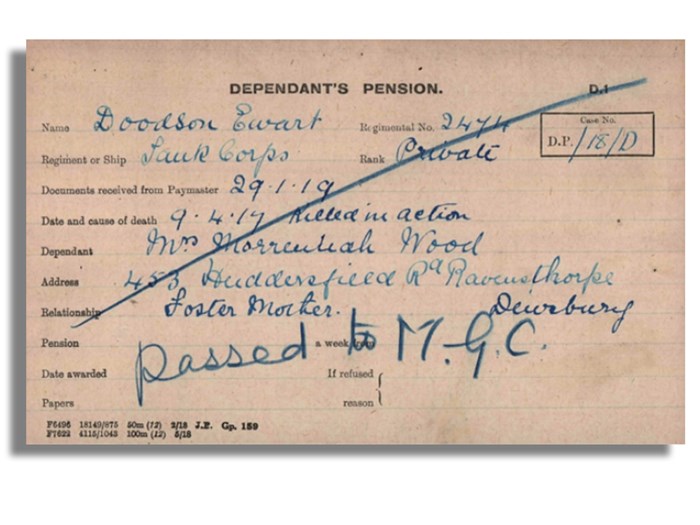 DEPENDANT'S PENSION. D.1
Name Doodson Ewart Regimental No. 2474 Case No.
Regiment or Ship Tank Corps Rank Private D.P. /18/D
Documents received from Paymaster 29.1.19
Date and cause of death 9.4.17 Killed in action
Dependant Mrs Wood
Address 453 Huddersfield Rd Ravensthorpe
Relationship Foster Mother. Dewsbury
Pension a week from
passed to M.G.C.
Date awarded If refused
Papers reason
F6496 18149/875 50m (12) 2/18 J.P. Gp. 159
F7622 4115/1043 100m (12) 5/18